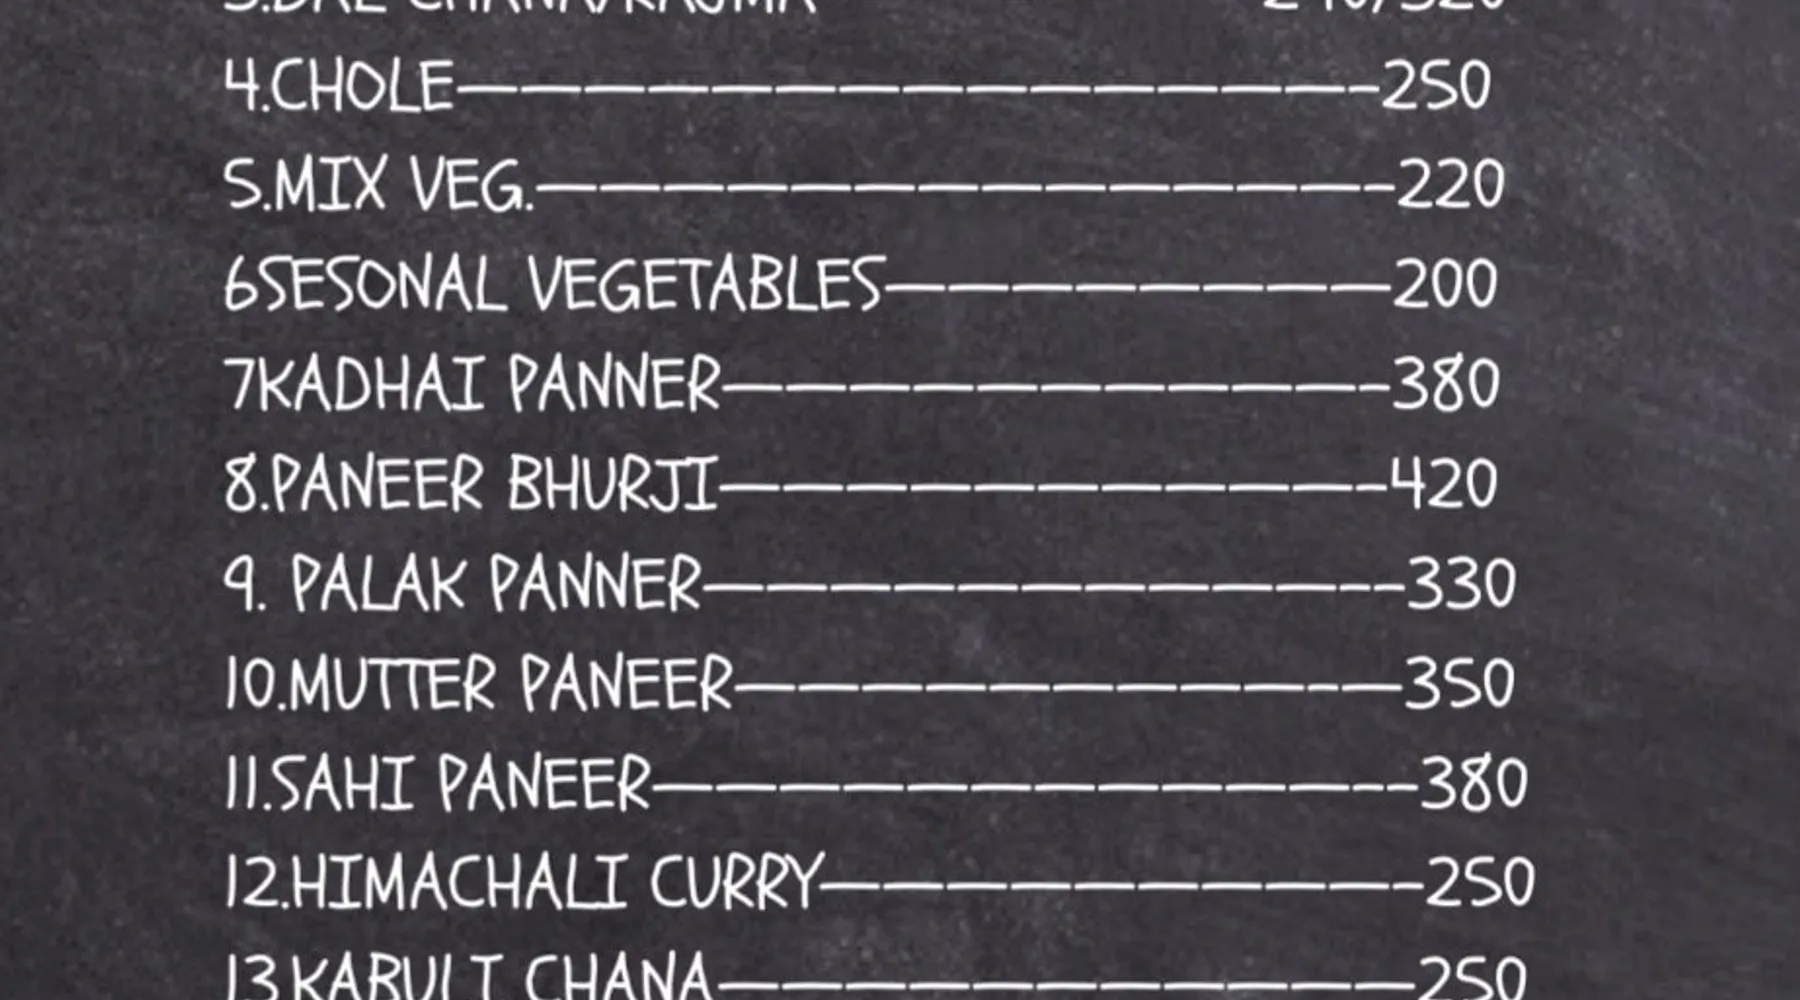 3.DAL CHANA/RAJMA 240/320
4.CHOLE---------------250
5.MIX VEG.--------------220
6SESONAL VEGETABLES--------200
7KADHAI PANNER-----------380
8.PANEER BHURJI-----------420
9. PALAK PANNER-----------330
10.MUTTER PANEER-----------350
11.SAHI PANEER------------380
12.HIMACHALI CURRY----------250
13.KABULI CHANA-----------250